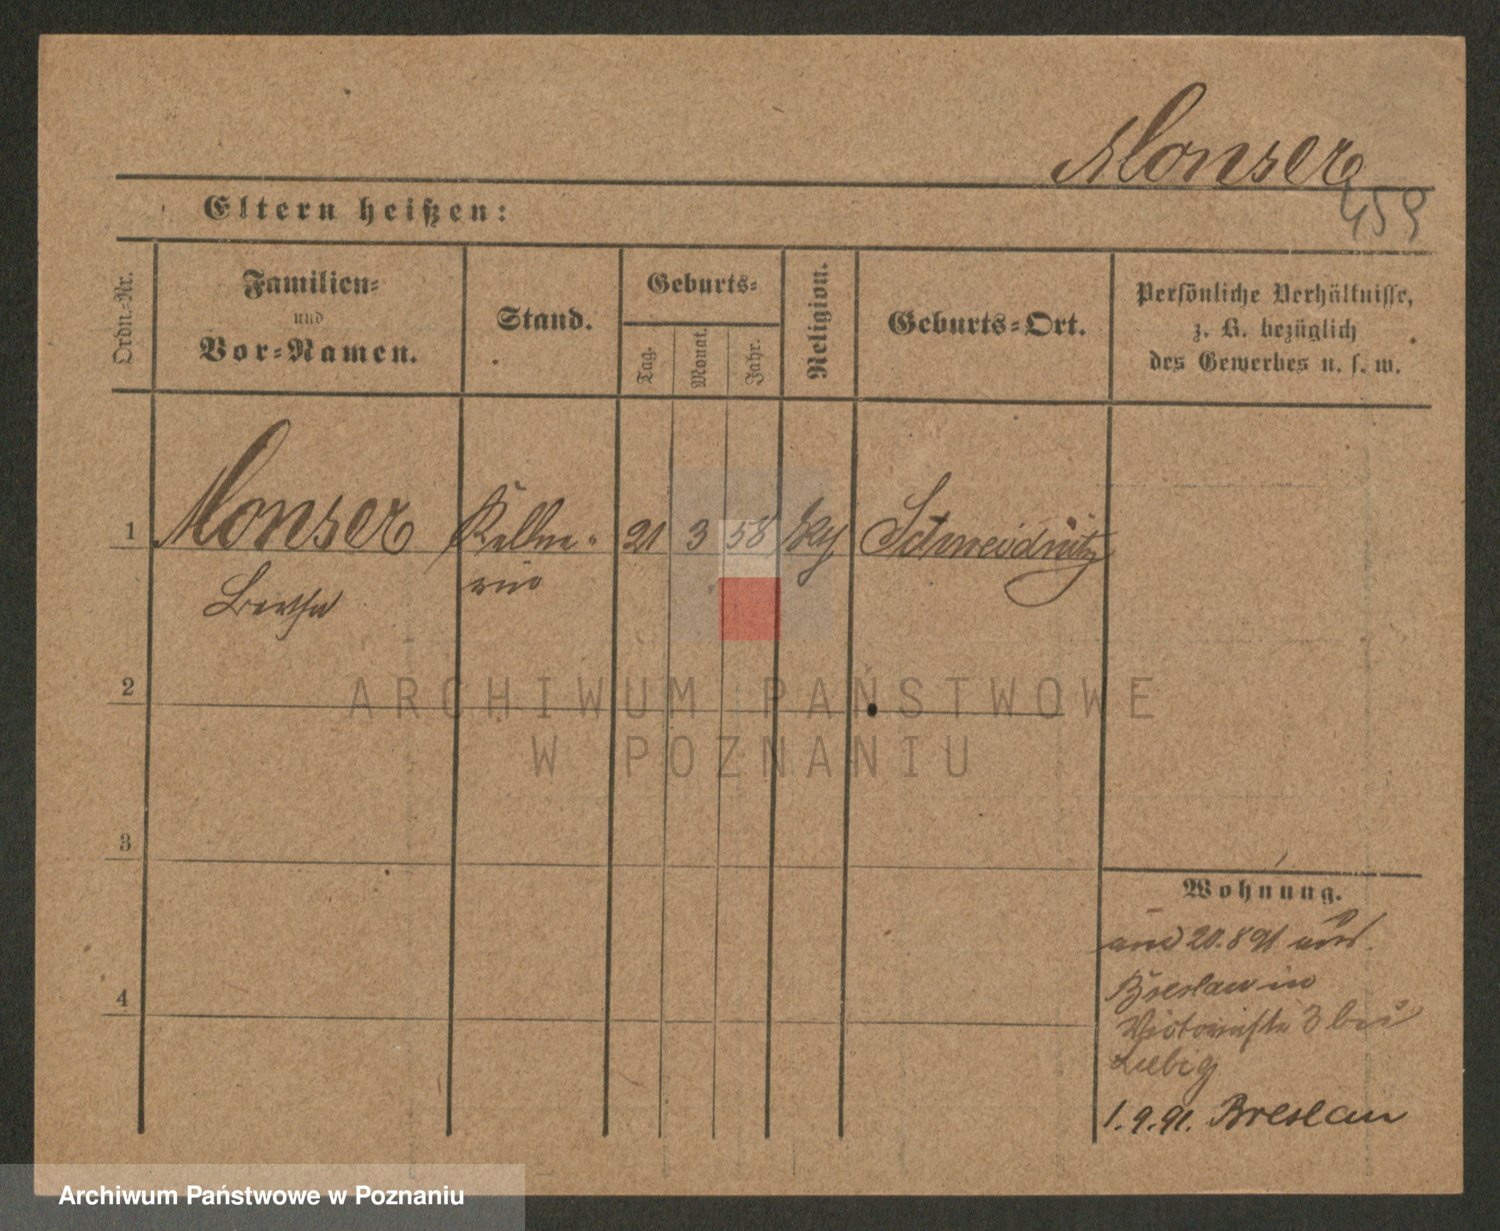 Monser
459
Eltern heißen:
Ordn.-Nr.
Familien-
und
Vor-Namen.
Stand.
Geburts-
Tag.
Monat.
Jahr.
Religion.
Geburts-Ort.
Persönliche Verhältnisse,
z. B. bezüglich
des Gewerbes u. s. w.
1 Monser Kellne- 21 3 58 Schweidnitz
Bertha rin
2
ARCHIWUM PAŃSTWOWE
W POZNANIU
3
Wohnung.
20.8 91
Breslau in
Victoriastr 3 bei
Liebig
4
1.9.91. Breslau
Archiwum Państwowe w Poznaniu